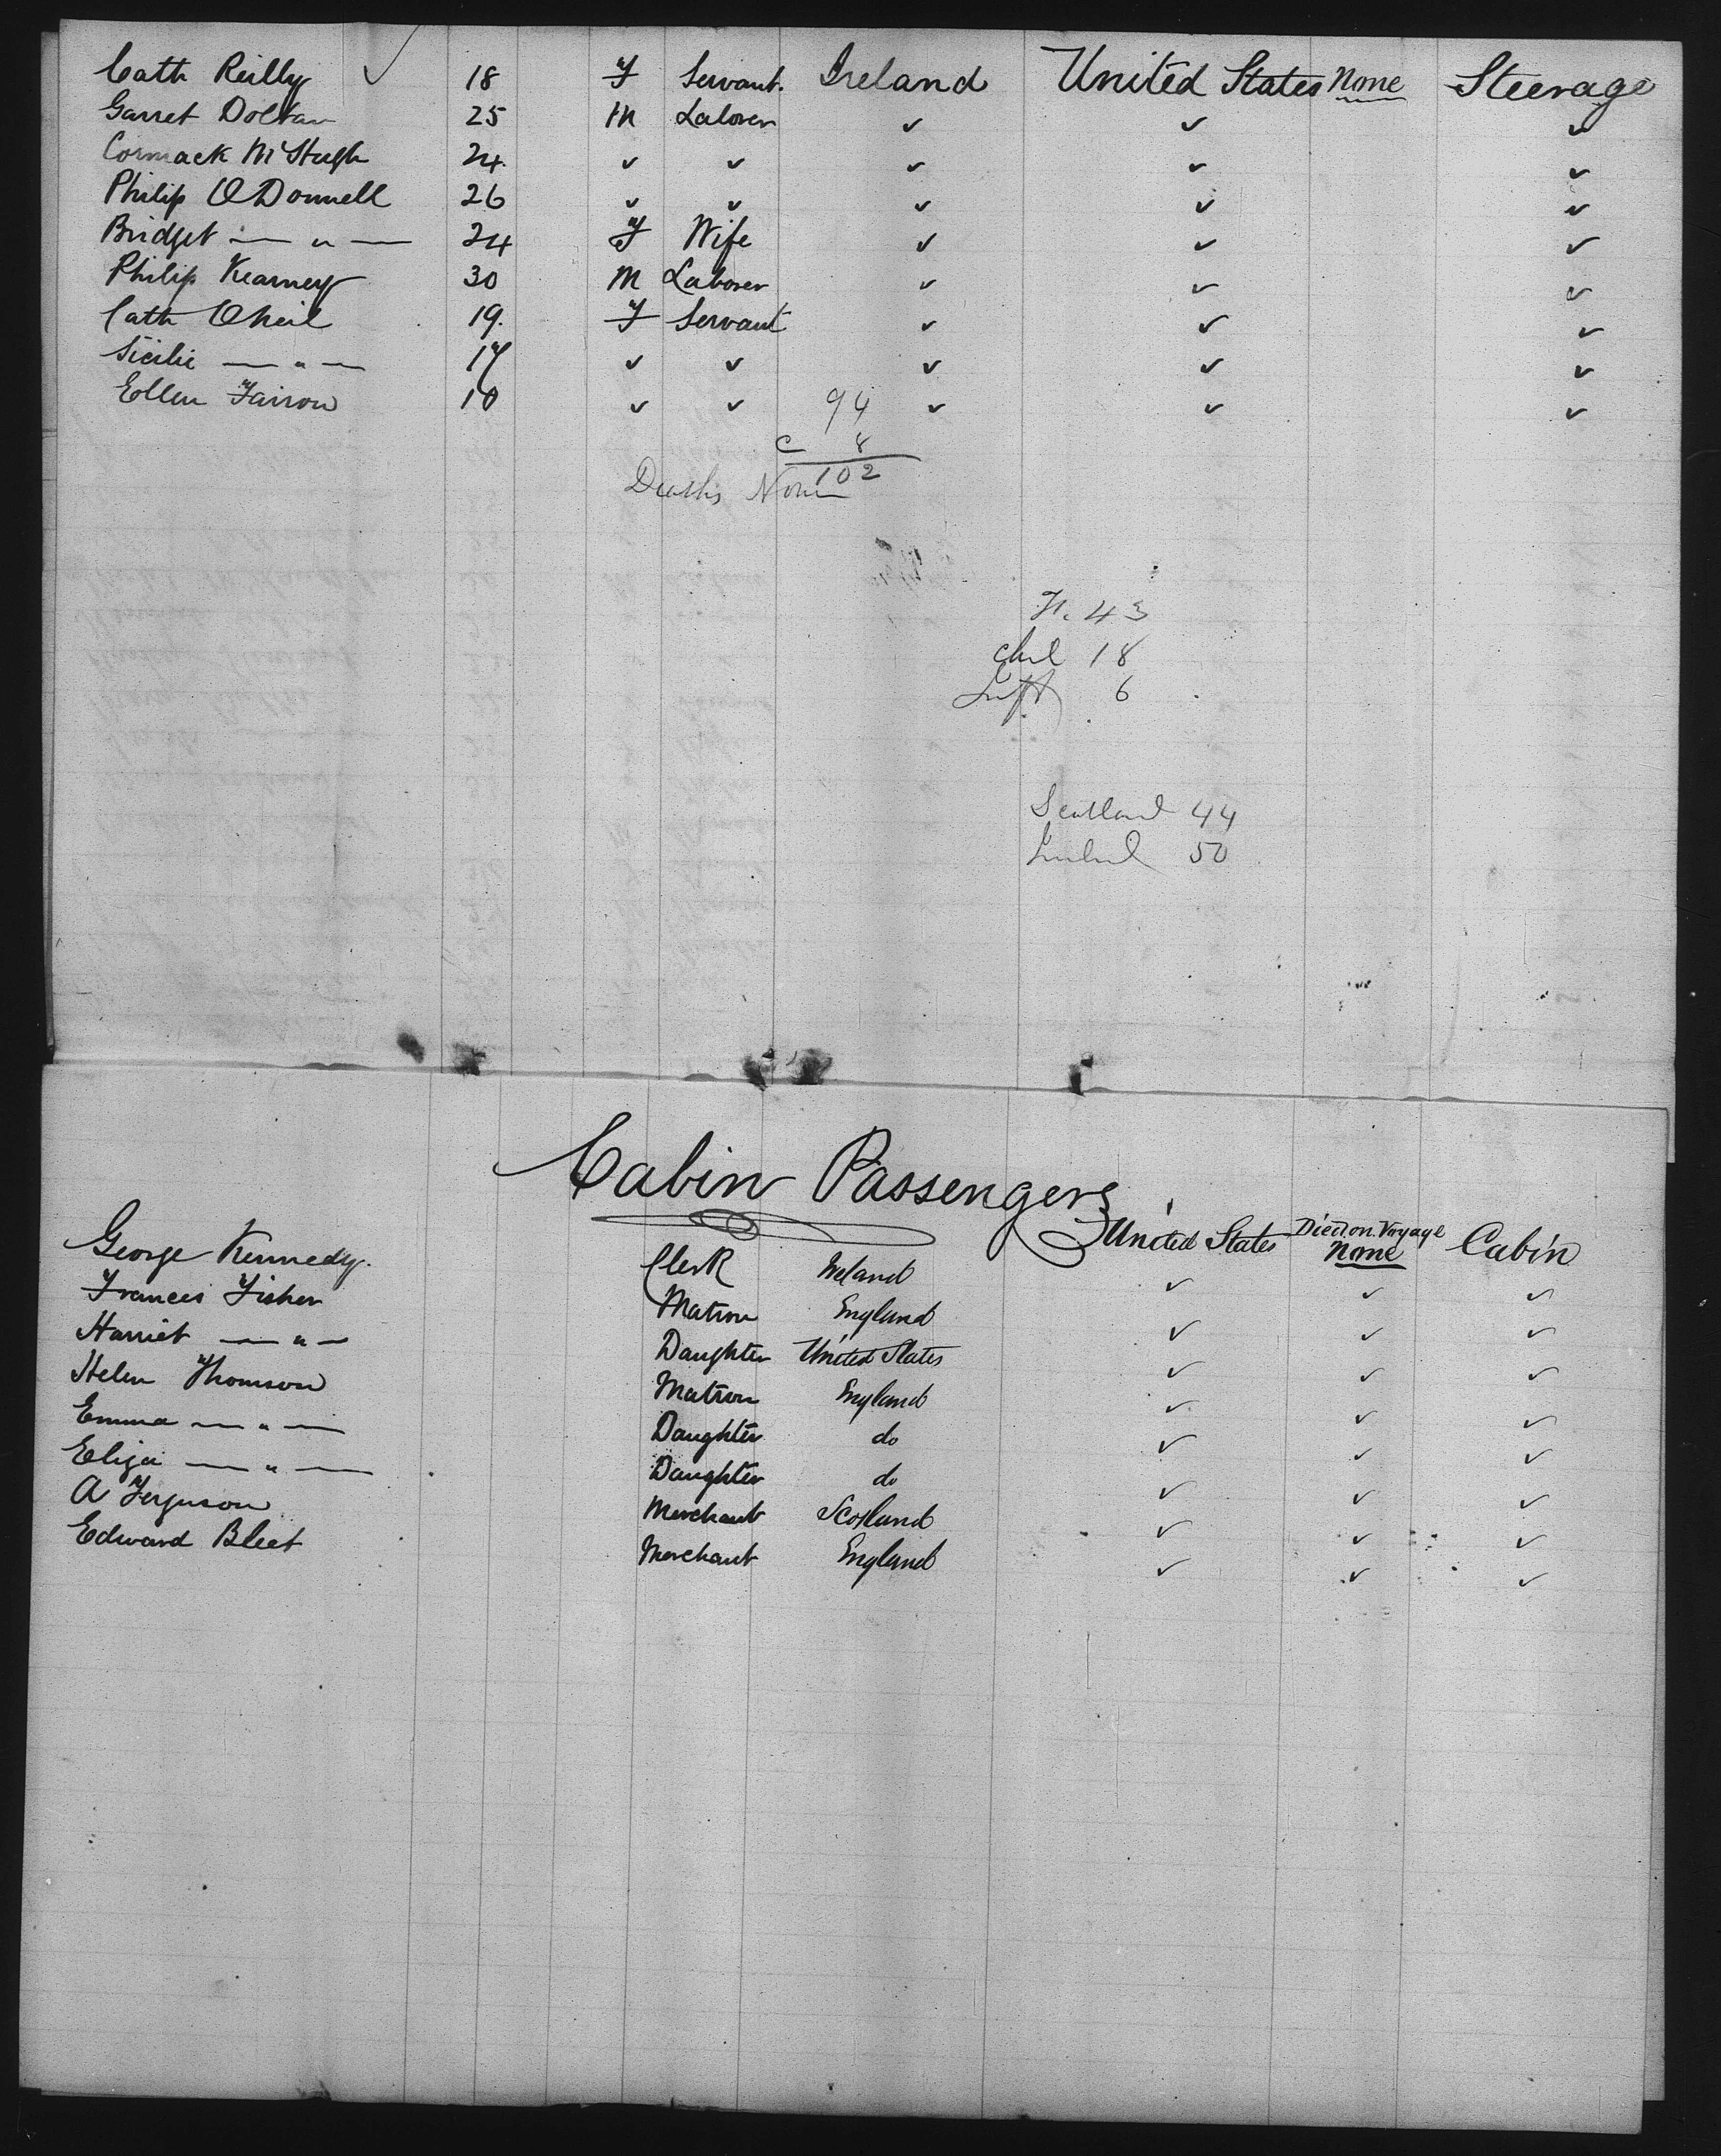 Cath Reilly ✓ 18 F Servant. Ireland United States None Steerage
Garret Dolan 25 M Laborer ✓ ✓ ✓
Cormack McHugh 24 ✓ ✓ ✓ ✓ ✓
Philip O Donnell 26 ✓ ✓ ✓ ✓ ✓
Bridget — " — 24 F Wife ✓ ✓ ✓
Philip Kearney 30 M Laborer ✓ ✓ ✓
Cath Oneil 19. F Servant ✓ ✓ ✓
Sicilie — " — 17 ✓ ✓ ✓ ✓ ✓
Ellen 10 ✓ ✓ 94 ✓ ✓ ✓
C 8
102
Deaths None
F. 43
Chil 18
Inft 6
Scotland 44
Ireland 50
Cabin Passengers
George Kennedy. Clerk Ireland United States Died on Voyage None Cabin
Frances Fisher Matron England ✓ ✓ ✓
Harriet — " — Daughter United States ✓ ✓ ✓
Helen Thomson Matron England ✓ ✓ ✓
Emma — " — Daughter do ✓ ✓ ✓
Eliza — " — Daughter do ✓ ✓ ✓
A Ferguson Merchant Scotland ✓ ✓ ✓
Edward Bleet Merchant England ✓ ✓ ✓